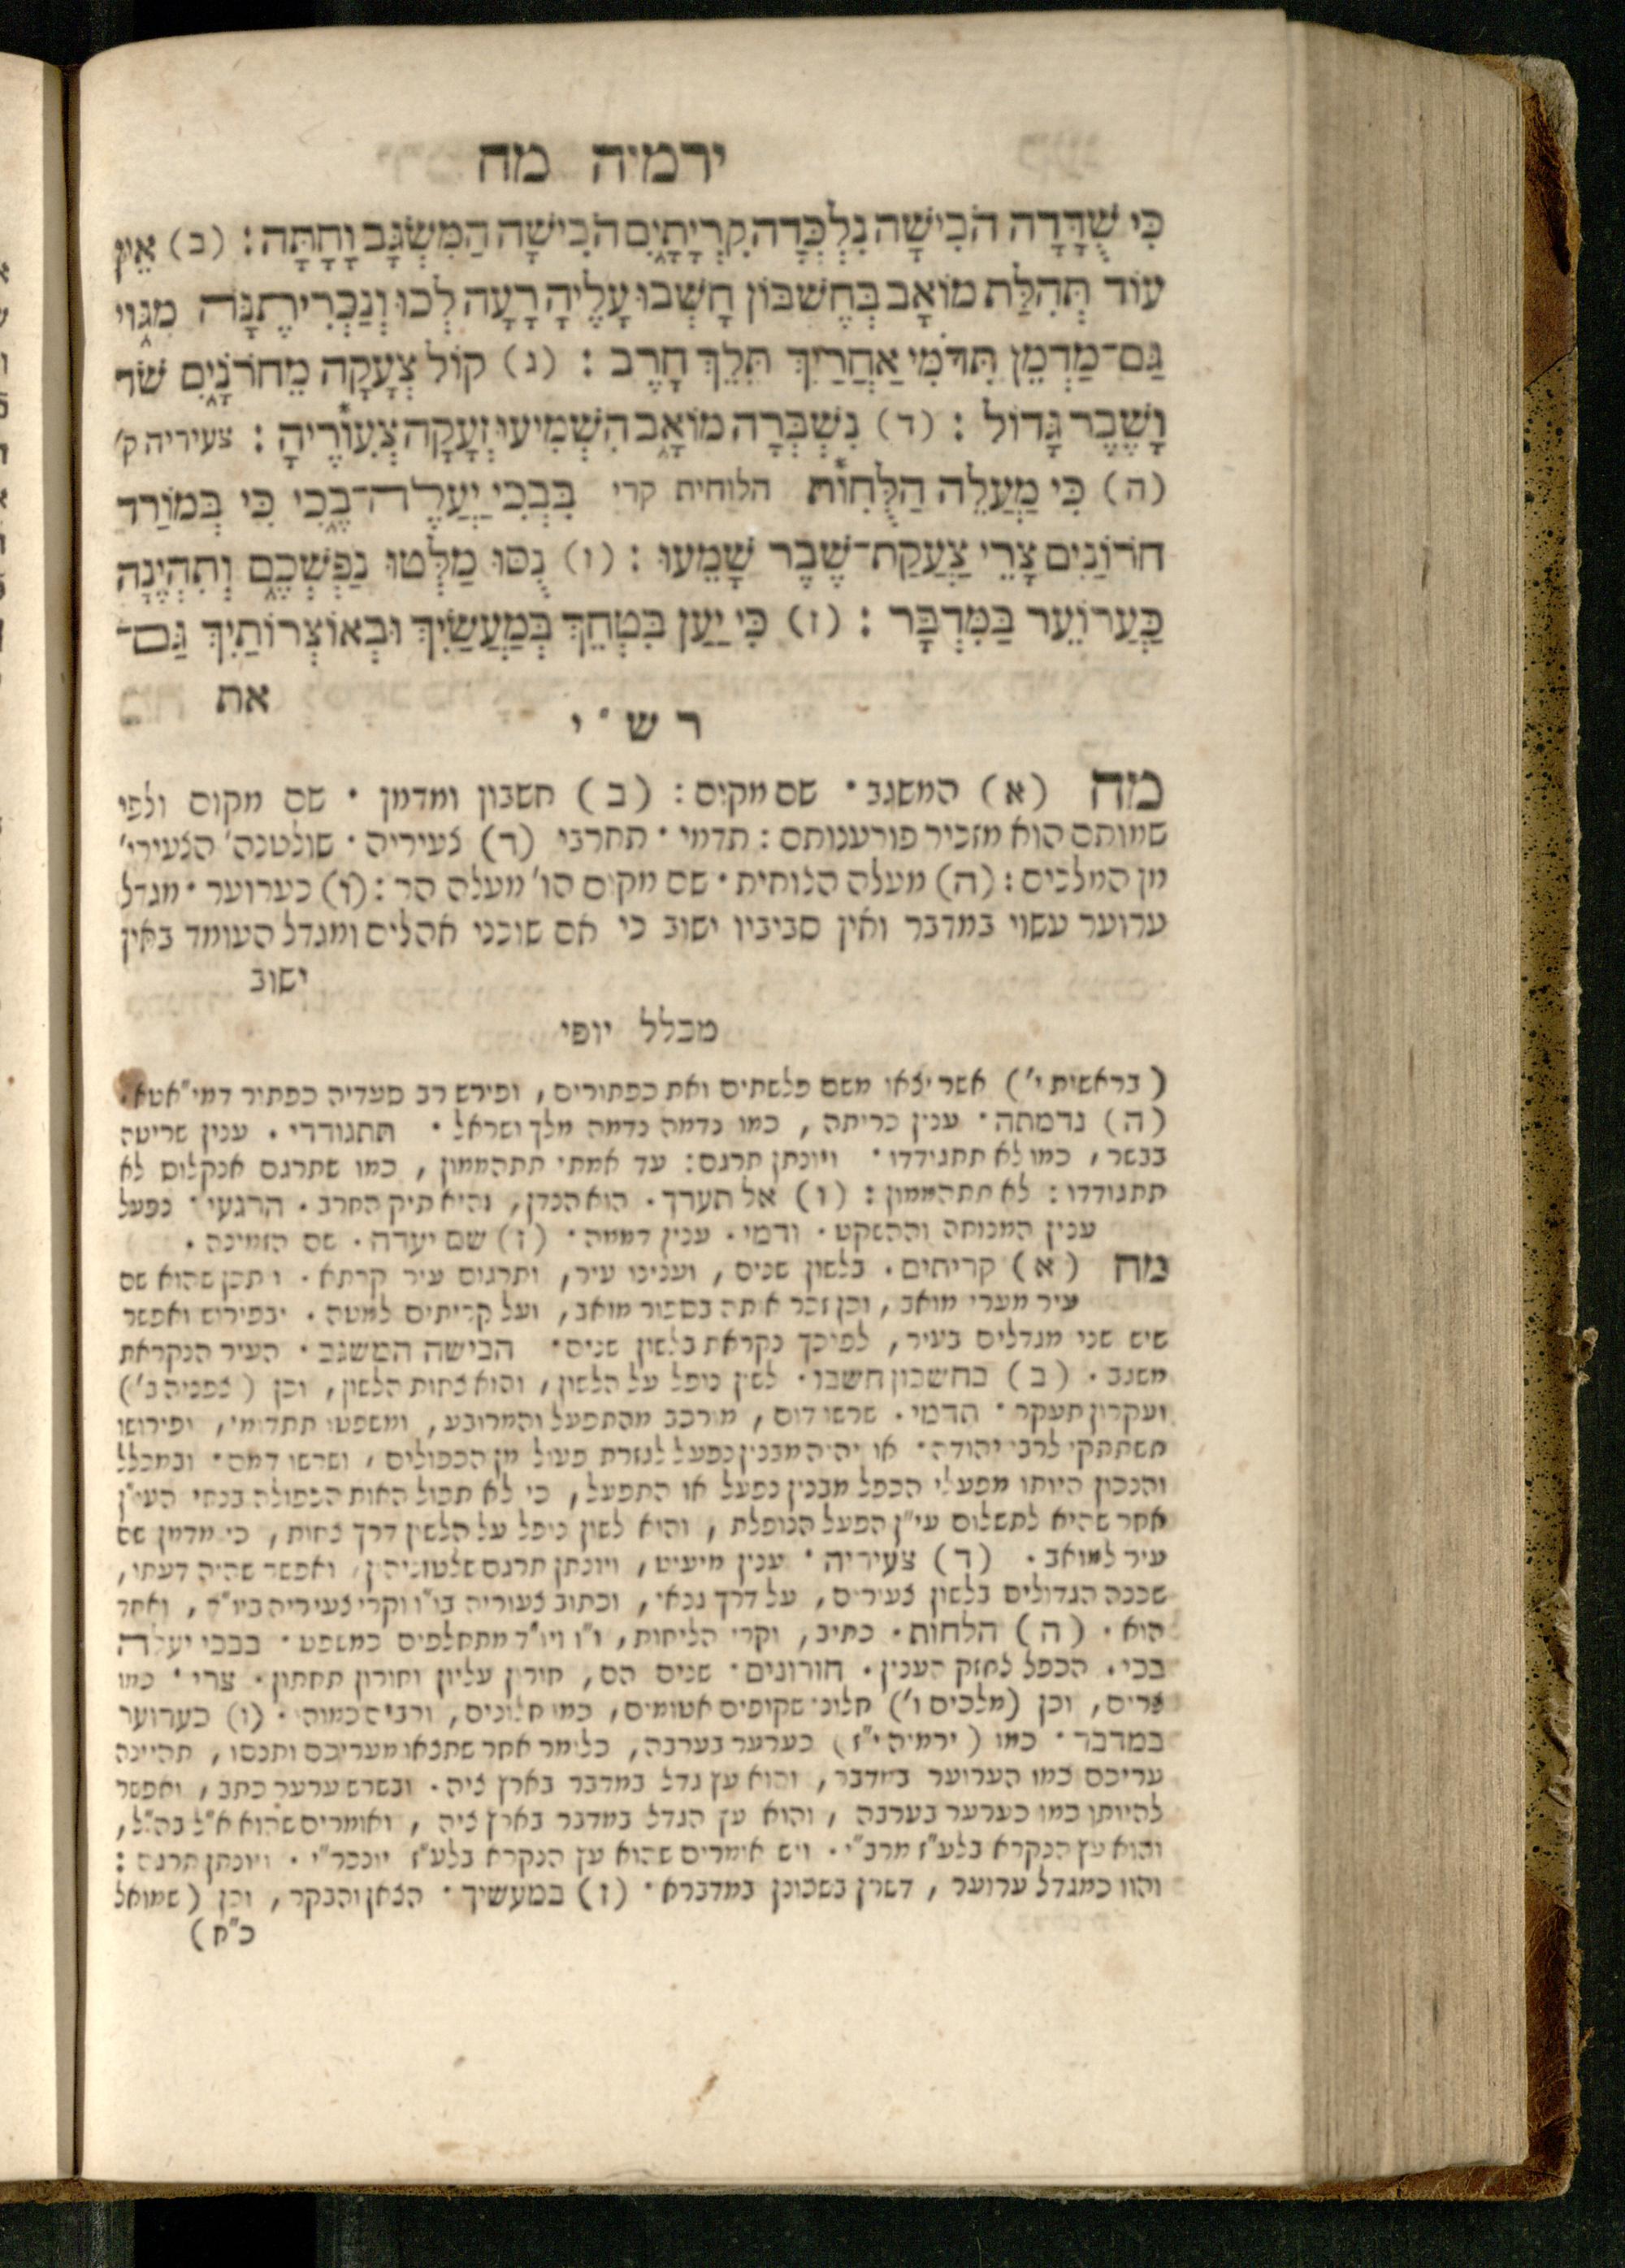 ירמיה מח
כִּי שֻׁדָּדָה הֹבִישָׁה נִלְכְּדָה קִרְיָתָיִם הֹבִישָׁה הַמִּשְׂגָּב וָחָתָּה : (ב) אֵין
עוֹד תְּהִלַּת מוֹאָב בְּחֶשְׁבּוֹן חָשְׁבוּ עָלֶיהָ רָעָה לְכוּ וְנַכְרִיתֶנָּה מִגּוֹי
גַּם־מַדְמֵן תִּדֹּמִּי אַחֲרַיִךְ תֵּלֵךְ חָרֶב : (ג) קוֹל צְעָקָה מֵחֹרֹנָיִם שֹׁד
וָשֶׁבֶר גָּדוֹל : (ד) נִשְׁבְּרָה מוֹאָב הִשְׁמִיעוּ זְעָקָה צְעוֹרֶיהָ : צעיריה ק׳
(ה) כִּי מַעֲלֵה הַלֻּחוֹת הלוחית קרי בִּבְכִי יַעֲלֶה־בֶּכִי כִּי בְּמוֹרַד
חֹרוֹנַיִם צָרֵי צַעֲקַת־שֶׁבֶר שָׁמֵעוּ : (ו) נֻסוּ מַלְּטוּ נַפְשְׁכֶם וְתִהְיֶינָה
כַּעֲרוֹעֵר בַּמִּדְבָּר : (ז) כִּי יַעַן בִּטְחֵךְ בְּמַעֲשַׂיִךְ וּבְאוֹצְרוֹתַיִךְ גַּם־
את
רש״י
מה (א) המשגב · שם מקום : (ב) חשבון ומדמן · שם מקום ולפי
שמותם הוא מזכיר פורענותם : תדמי · תחרבי (ד) צעיריה · שולטנה׳ הצעירי׳
מן המלכים : (ה) מעלה הלוחית · שם מקום הו׳ מעלה הר : (ו) כערוער · מגדל
ערוער עשוי במדבר ואין סביביו ישוב כי אם שוכני אהלים ומגדל העומד באין
ישוב
מכלל יופי
(בראשית י׳) אשר יצאו משם פלשתים ואת כפתורים, ופירש רב סעדיה כפתור דמי״אטא.
(ה) נדמתה · ענין כריתה, כמו נדמה נדמה מלך ישראל · תתגודדי · ענין שריטה
בבשר, כמו לא תתגודדו · ויונתן תרגם : עד אמתי תתהממון, כמו שתרגם אנקלוס לא
תתגודדו : לא תתהממון : (ו) אל תערך · הוא הנדן, והיא תיק החרב · הרגעי · נפעל
ענין המנוחה וההשקט · ודמי · ענין דממה · (ז) שם יעדה · שם הזמינה ·
מה (א) קריתים · בלשון שנים, וענינו עיר, ותרגום עיר קרתא · ותכן שהוא שם
עיר מערי מואב, וכן זכר אותה בספור מואב, ועל קריתים למטה · יבפירוש ואפשר
שיש שני מגדלים בעיר, לפיכך נקראת בלשון שנים · הבישה המשגב · העיר הנקראת
משגב · (ב) בחשבון חשבו · לשון נופל על הלשון, והוא צחות הלשון, וכן (צפניה ב׳)
ועקרון תעקר · תדמי · שרשו דום, מורכב מהתפעל והמרובע, ומשפטו תתדומי, ופירושו
תשתתקי לרבי יהודה · או יהיה מבנין נפעל לגזרת פעול מן הכפולים, ושרשו דמם · ובמכלל
והנכון היותו מפעלי הכפל מבנין נפעל או התפעל, כי לא תפול האות הכפולה בנחי העי״ן
אחר שהיא לתשלום עי״ן הפעל הנופלת, והוא לשון נופל על הלשון דרך צחות, כי מדמן שם
עיר למואב · (ד) צעיריה · ענין מיעוט, ויונתן תרגם שלטוניהון, ואפשר שהיה דעתו,
שכנה הגדולים בלשון צעירים, על דרך גנאי, וכתוב צעוריה בוי״ו וקרי צעיריה ביו״ד, ואחד
הוא · (ה) הלחות · כתיב, וקרי הליחות, וי״ו ויו״ד מתחלפים כמשפט · בבכי יעלה
בכי · הכפל לחזק הענין · חורונים · שנים הם, חורון עליון וחורון תחתון · צרי · כמו
צרים, וכן (מלכים ו׳) חלוני שקופים אטומים, כמו חלונים, ורבים כמוהו · (ו) כערוער
במדבר · כמו (ירמיה י״ז) כערער בערבה, כלומר אחר שתצאו מעריכם ותנסו, תהיינה
עריכם כמו הערוער במדבר, והוא עץ גדל במדבר בארץ ציה · ובשרש ערער כתב, ואפשר
להיותו כמו כערער בערבה, והוא עץ הגדל במדבר בארץ ציה, ואומרים שהוא א״ל בה״ל,
והוא עץ הנקרא בלע״ז מרב״י · ויש אומרים שהוא עץ הנקרא בלע״ז יונפר״י · ויונתן תרגם :
והוו כמגדל ערוער, דשרן בשכונן במדברא · (ז) במעשיך · הצאן והבקר, וכן (שמואל
כ״ח)